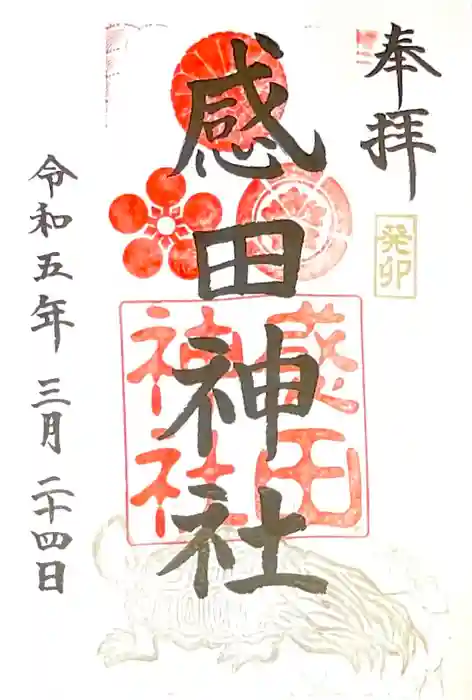 奉拝
癸卯
感田神社
感田
神社
令和五年 三月 二十四日